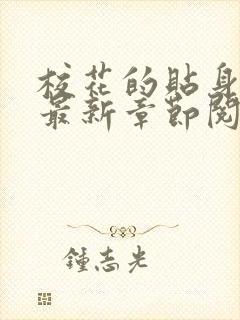 校花的貼身
最新章節閱
鍾志光